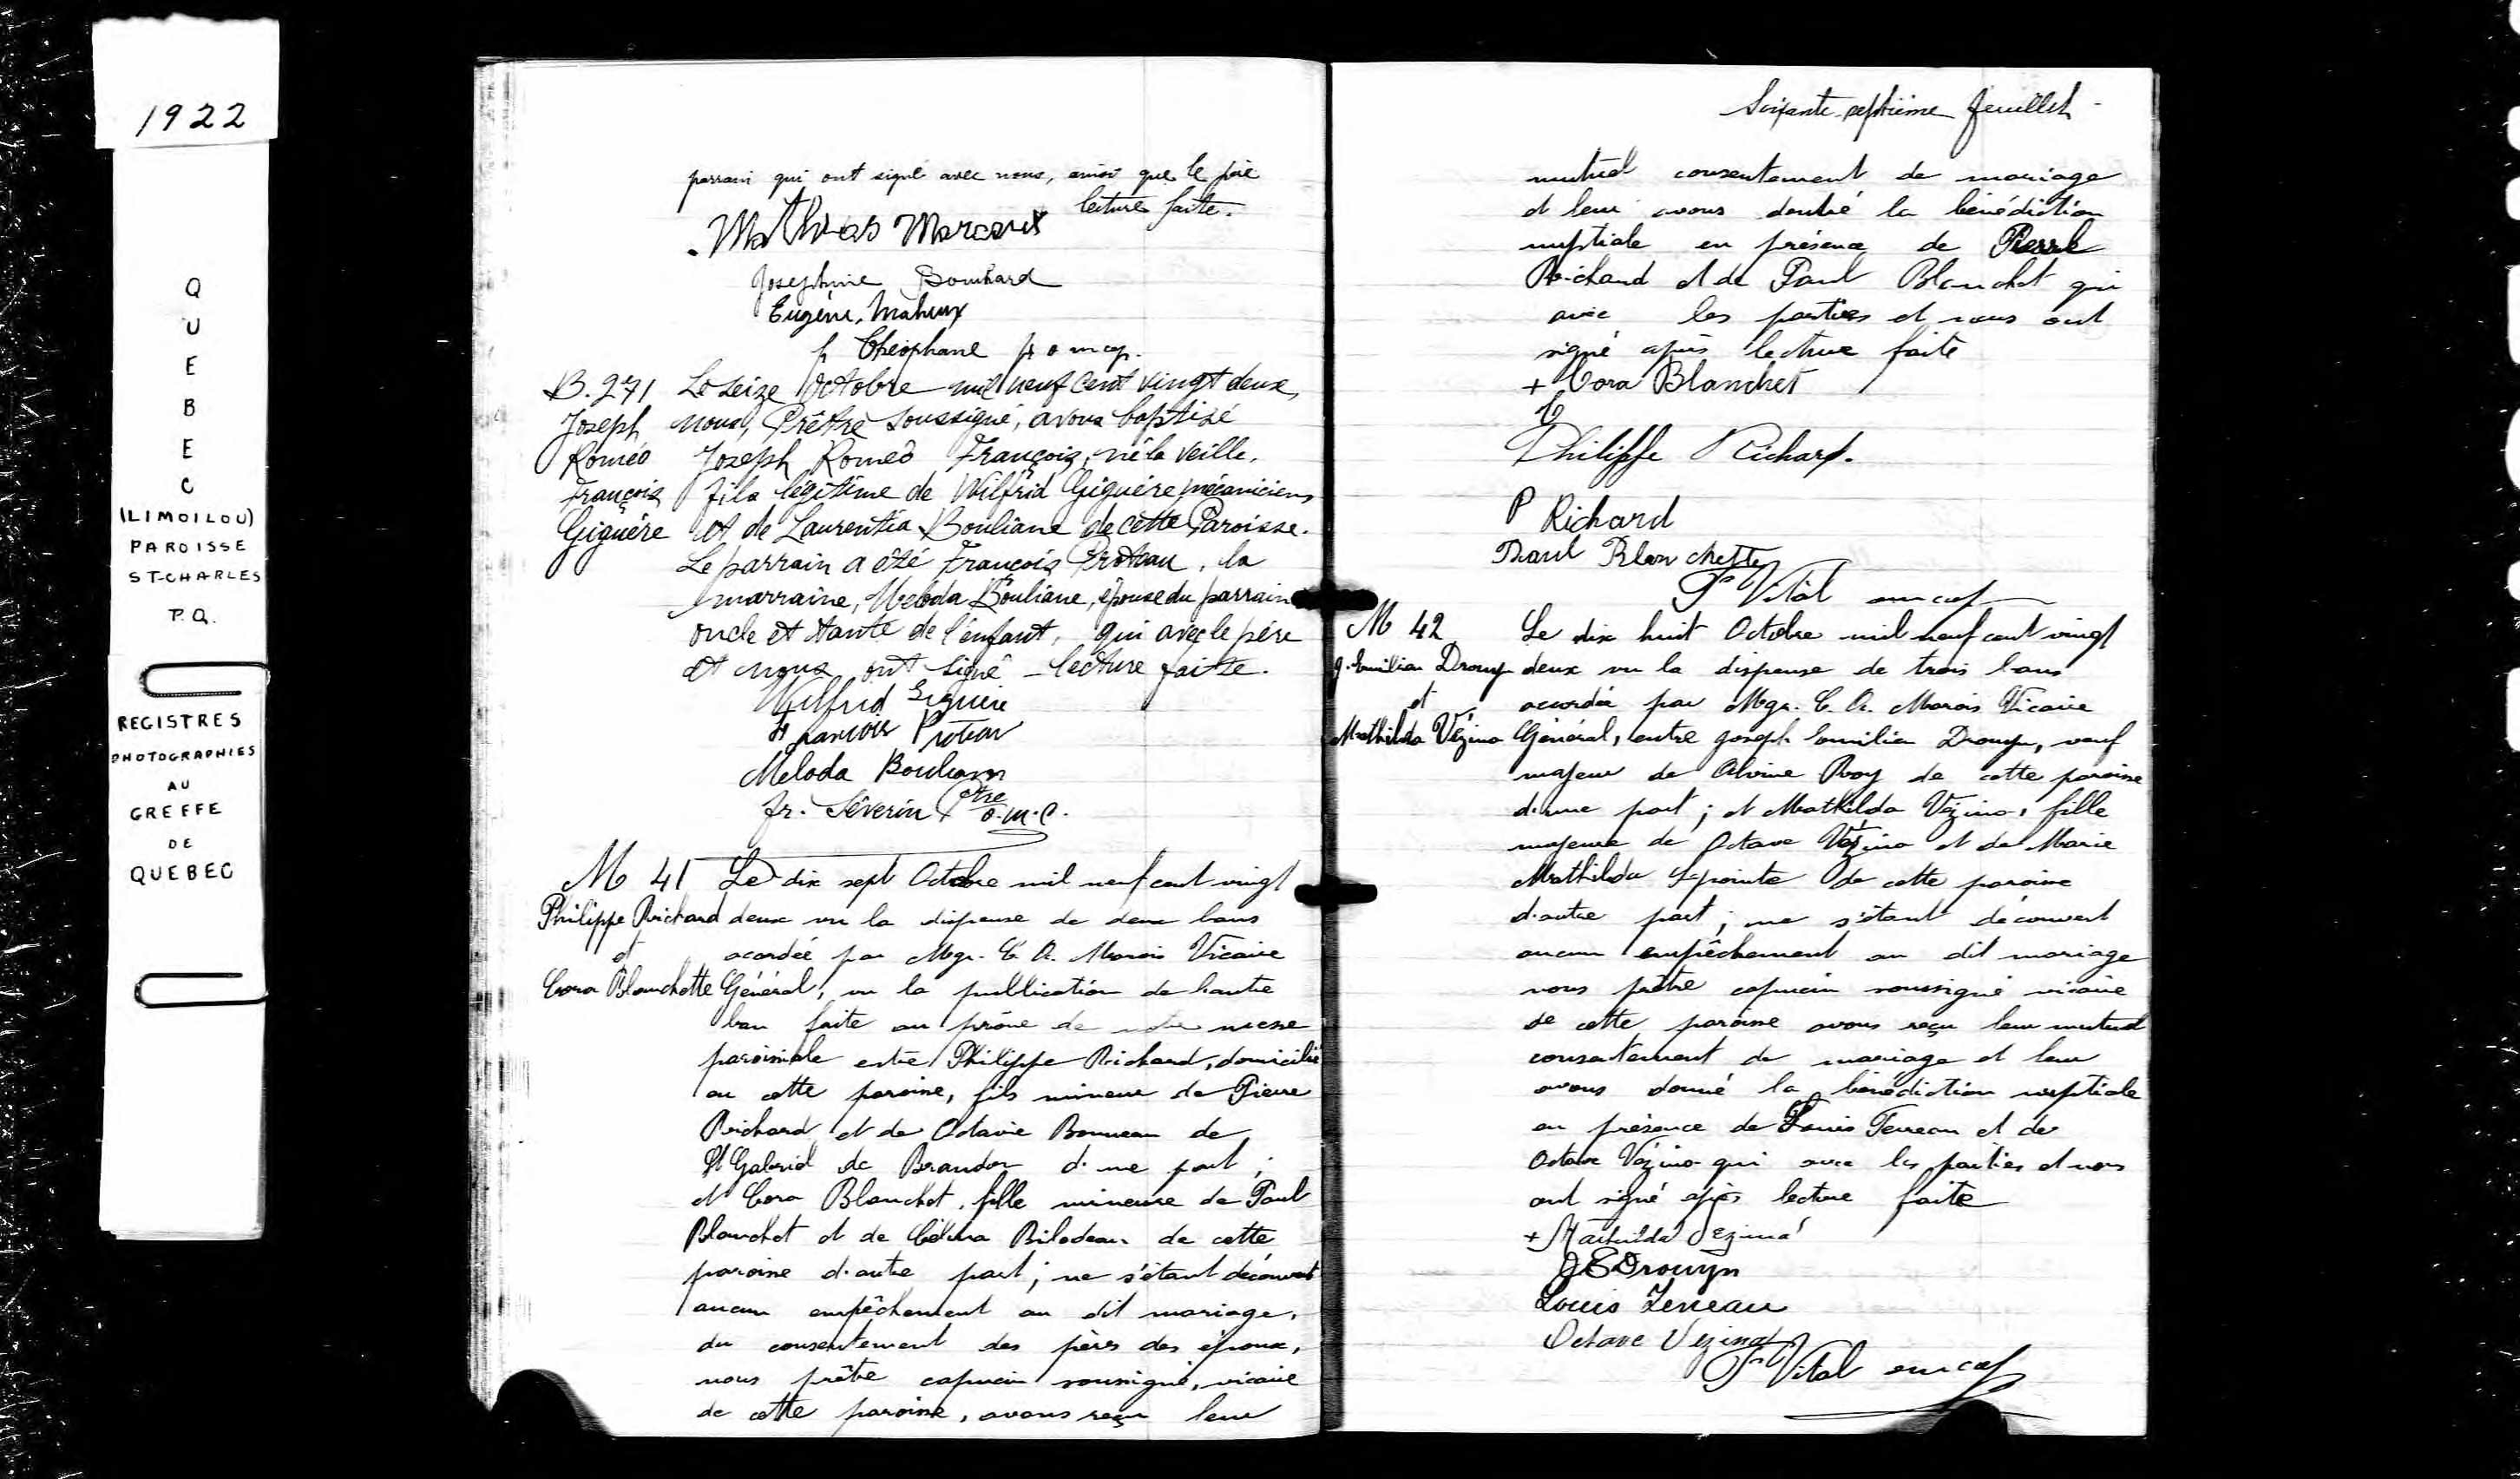 1922
QUEBEC
(LIMOILOU)
PAROISSE
ST-CHARLES
P.Q.
REGISTRES
PHOTOGRAPHIES
AU
GREFFE
DE
QUEBEC
parrain qui ont signé avec nous, ainsi que le père
lecture faite.
Mathias Marcoux
Josephine Bouchard
Eugénie Maheux
fr Théophane
B. 271 Le seize Octobre mil neuf cent vingt deux,
Joseph nous, Prêtre soussigné, avons baptisé
Roméo Joseph Roméo François, né la veille,
François fils légitime de Wilfrid Giguère mécanicien
Giguère et de Laurentia Bouliane de cette Paroisse.
Le parrain a été François Proteau, la
marraine, Meloda Bouliane, épouse du parrain
oncle et tante de l'enfant, qui avec le père
et nous ont signé - lecture faite.
Wilfrid Giguère
François Proteau
Meloda Bouliane
fr. Séverin Ptre o.m.c.
M 41 Le dix sept Octobre mil neuf cent vingt
Philippe Richard deux vu la dispense de deux bans
et acordée par Mgr. C. A. Marois Vicaire
Cora Blanchette Général, vu la publlication de l'autre
ban faite au prône de notre messe
paroissiale entre Philippe Richard, domicilié
en cette paroisse, fils mineur de Pierre
Richard et de Octavie Bonneau de
St Gabriel de Brandon d'une part;
et Cora Blanchet, fille mineure de Paul
Blanchet et de Célina Bilodeau de cette
paroisse d'autre part; ne s'étant découvert
aucun empêchement au dit mariage,
du consentement des pères des époux,
nous prêtre capucin soussigné, vicaire
de cette paroisse, avons reçu leur
Soixante-septième feuillet
mutuel consentement de mariage
et leur avons donné la bénédiction
nuptiale en présence de Pierre
Richard et de Paul Blanchet qui
avec les parties et nous ont
signé après lecture faite
+ Cora Blanchet
Philippe Richard.
P Richard
Paul Blanchette
Fr Vital om cap
M 42 Le dix huit Octobre mil neuf cent vingt
J. Emilien Drouyn deux vu la dispense de trois bans
et accordée par Mgr. C. A. Marois Vicaire
Mathilda Vézina Général, entre Joseph Emilien Drouyn, veuf
majeur de Alvine Roy de cette paroisse
d'une part; et Mathilda Vézina, fille
majeure de Octave Vézina et de Marie
Mathilda Lapointe de cette paroisse
d'autre part; ne s'étant découvert
aucun empêchement au dit mariage
nous prêtre capucin soussigné vicaire
de cette paroisse avons reçu leur mutuel
consentement de mariage et leur
avons donné la bénédiction nuptiale
en présence de Louis Terreau et de
Octave Vézina qui avec les parties et nous
ont signé après lecture faite
+ Mathilda Vezina
J E Drouyn
Louis Terreau
Octave Vezina
Fr Vital om cap